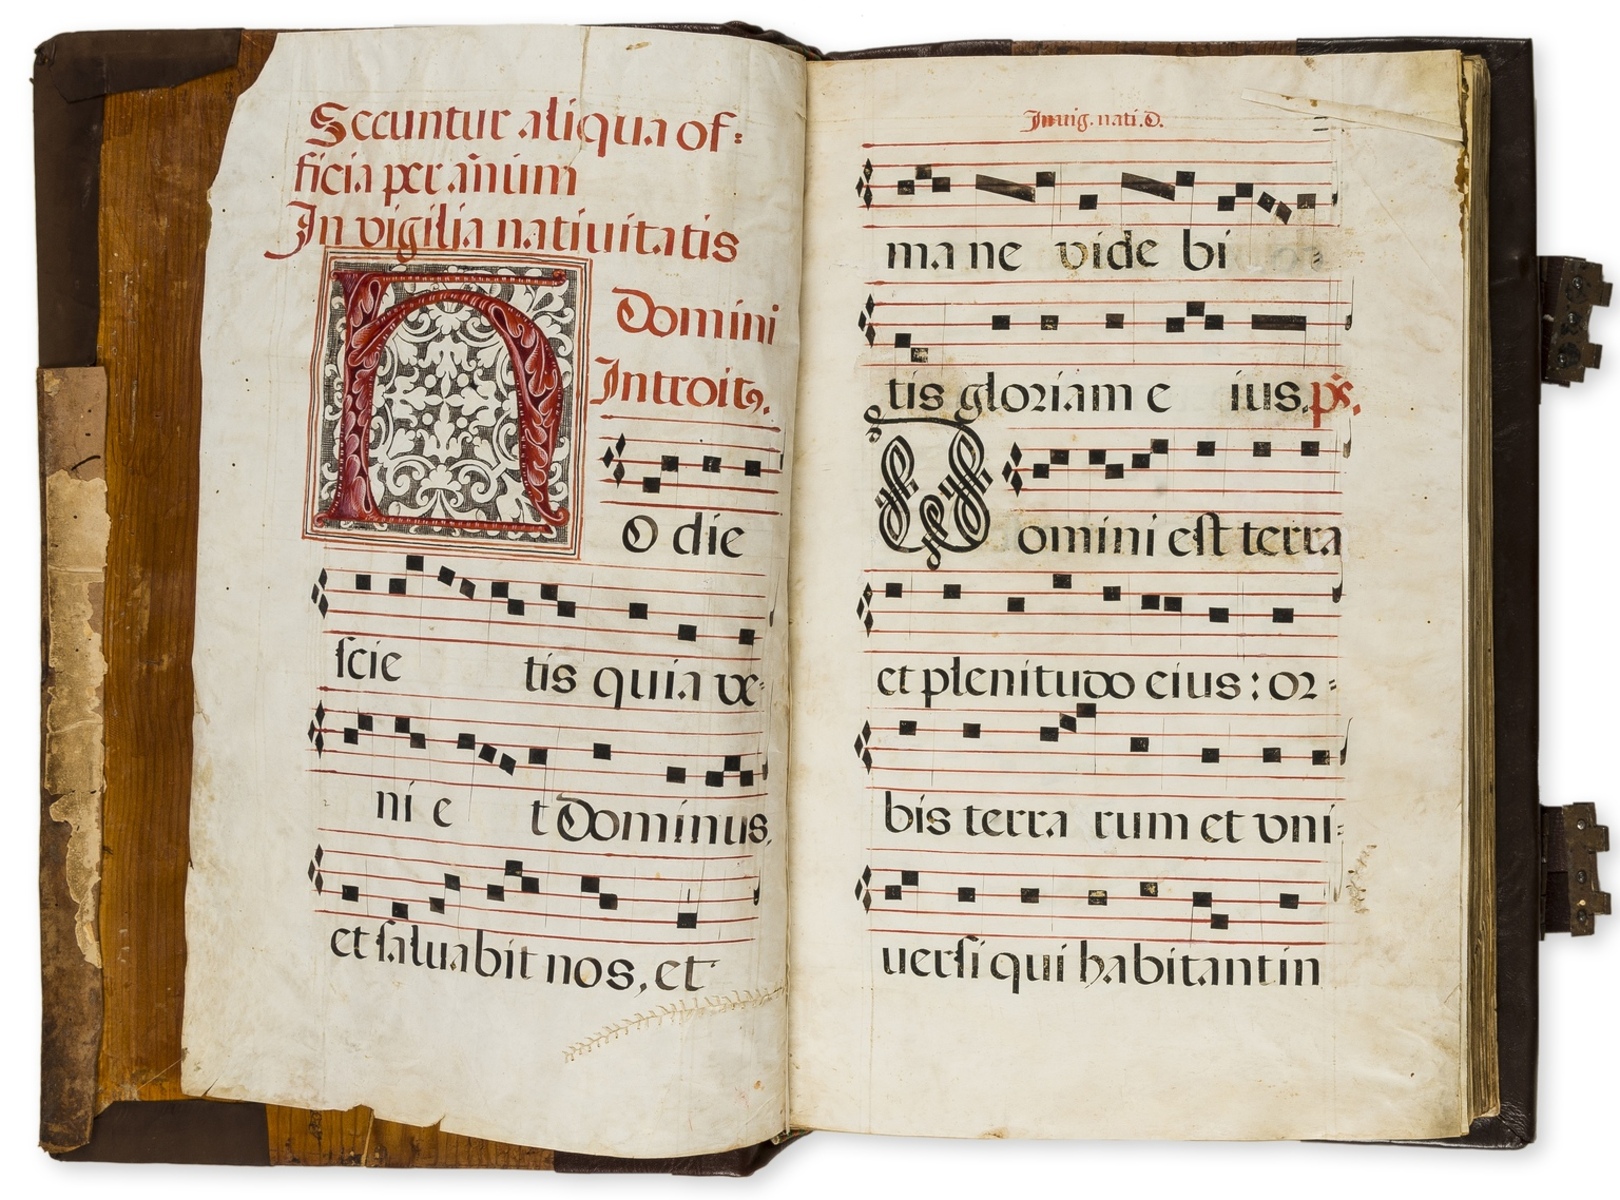 Secuntur aliqua of=
ficia per añum
In vigilia natiuitatis
Domini
Introitꝰ.
H
O die
scie tis quia ve=
ni e t Dominus,
et saluabit nos, et
In uig. nati. D.
mane vide bi
tis gloriam e ius. ps̃.
Domini est terra
et plenitudo eius : or=
bis terra rum et vni=
uersi qui habitant in